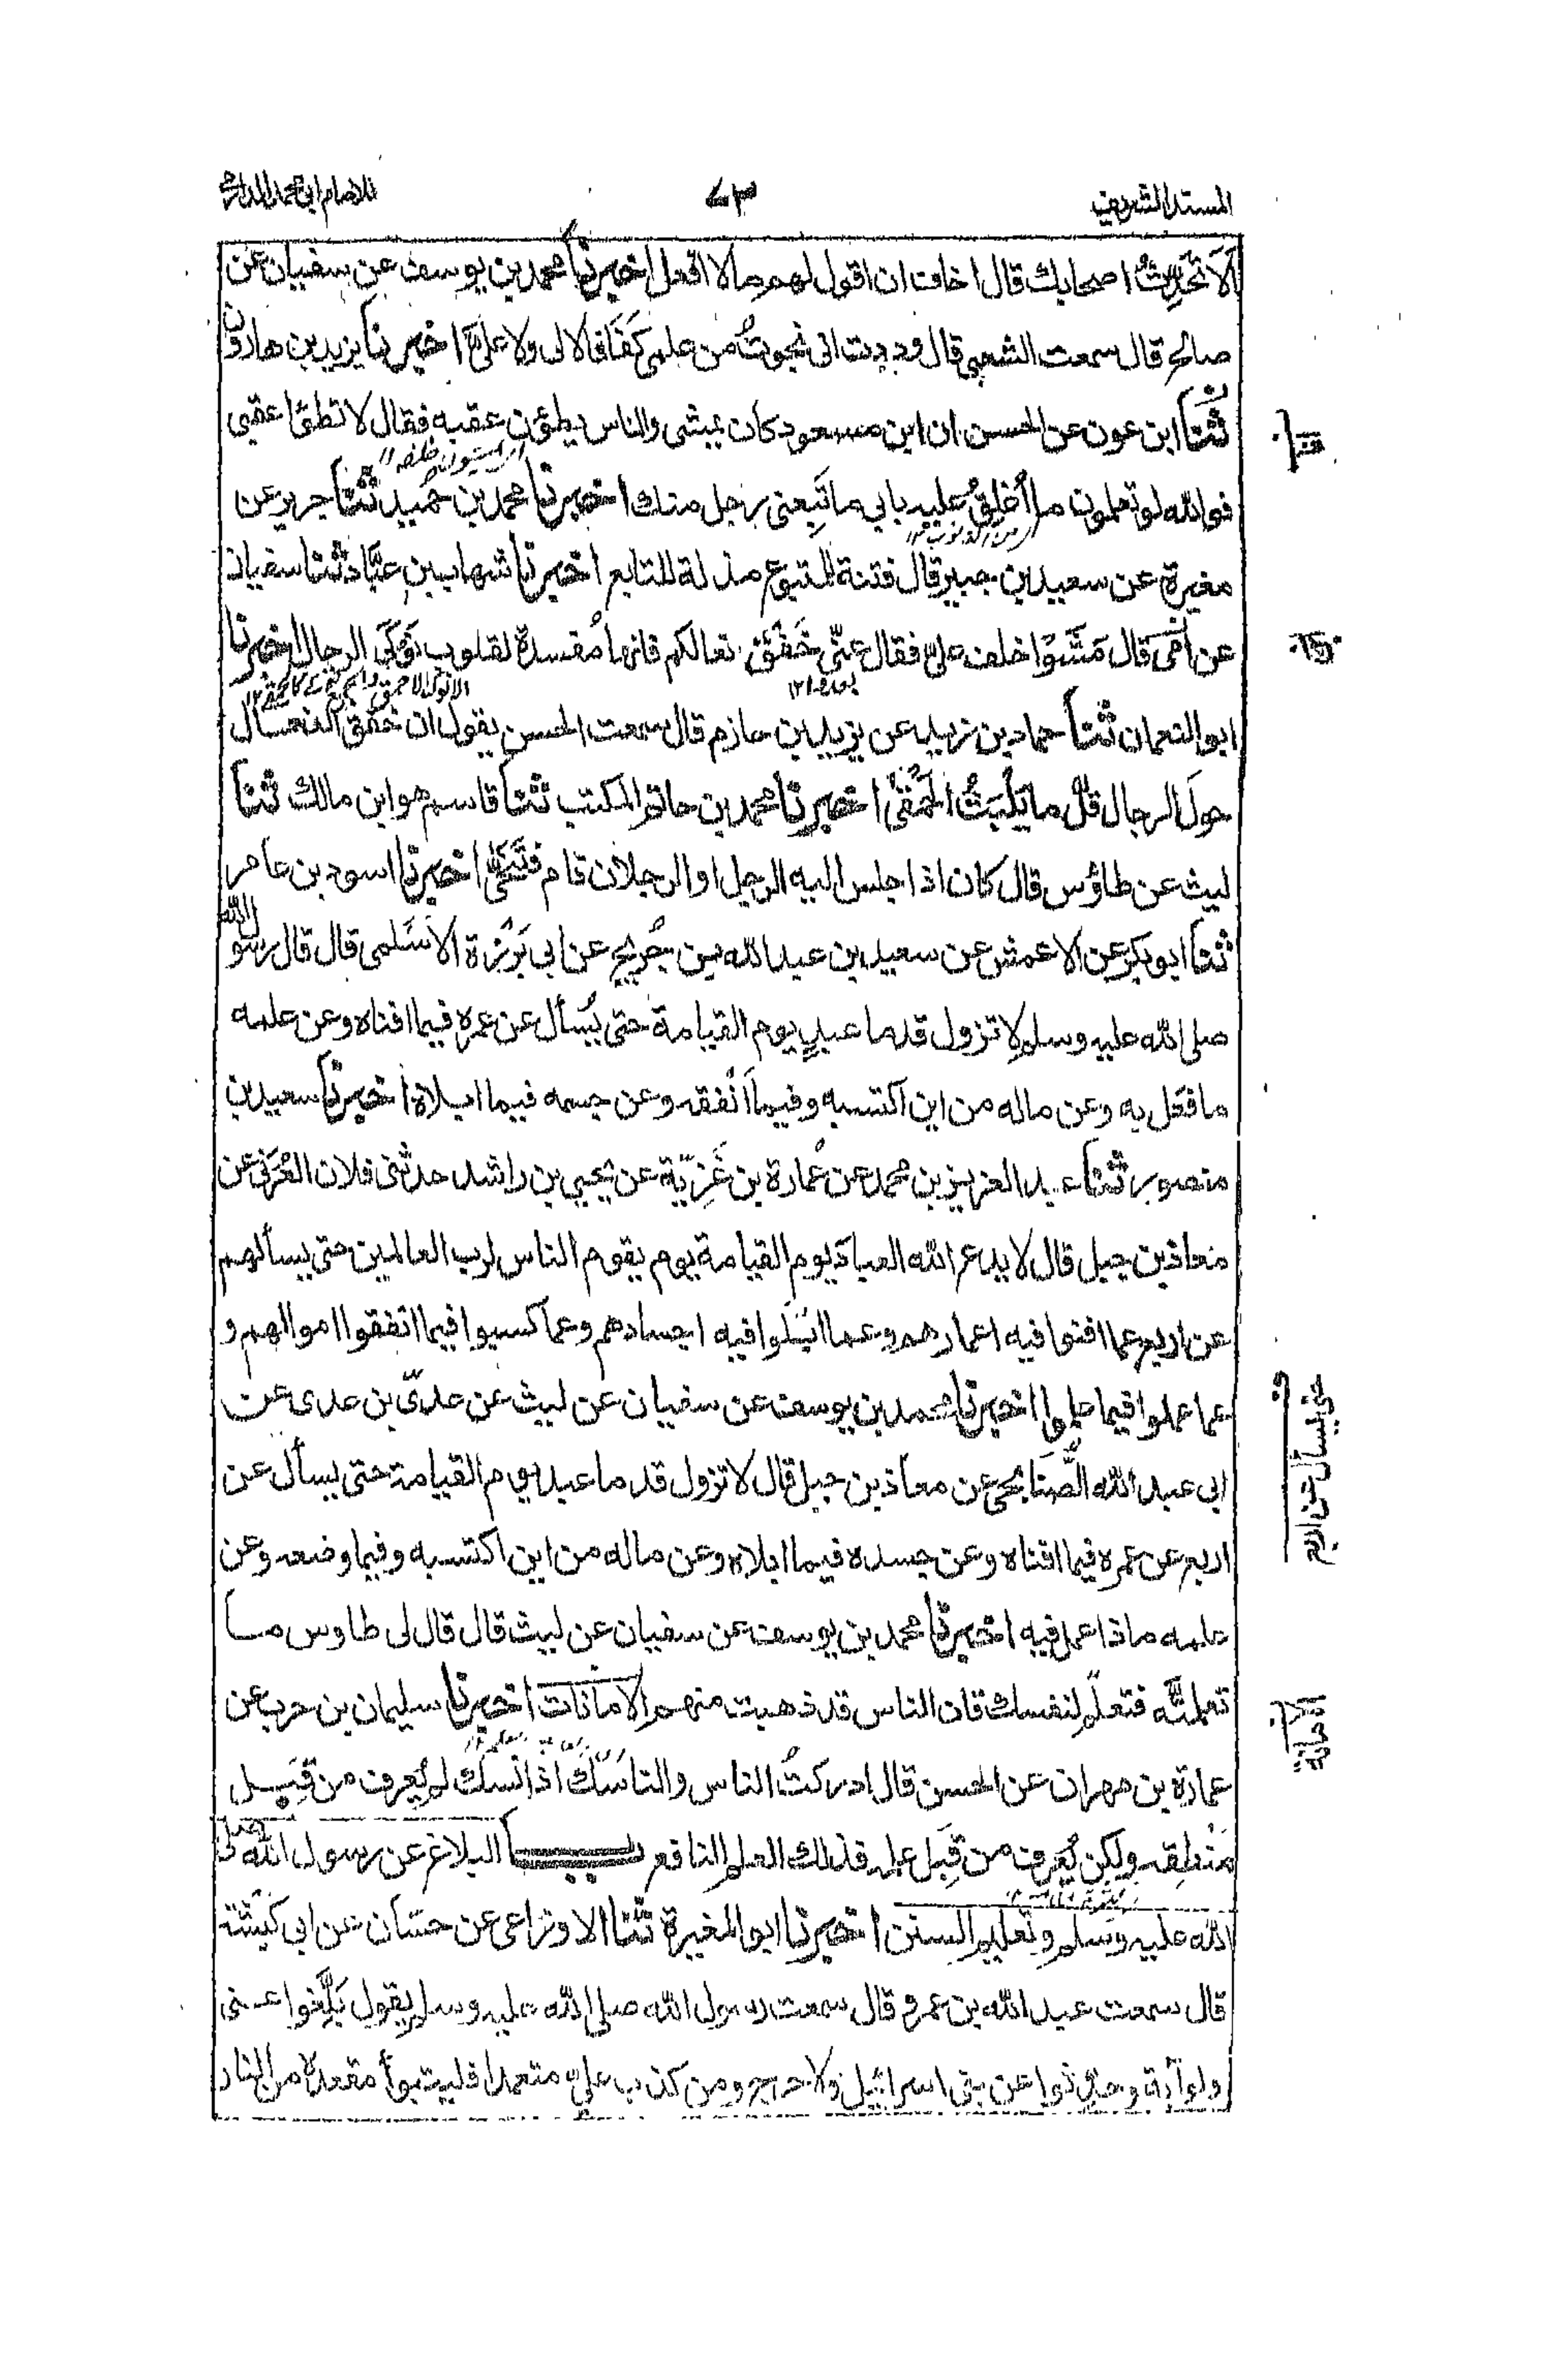 المسند الشريف ٧٣ للامام ابى محمد الدارمى
اَلَا تُحَدِّثُ اصحابك قال اخاف ان اقول لهم ما لا افعل اخبرنا محمد بن يوسف عن سفيان عن
صالح قال سمعت الشعبي قال وددت انى نجوتُ من علمى كَفَافًا لا لى ولا عَلَىَّ اخبرنا يزيد بن هارون
ثَنَا ابن عون عن الحسن ان ابن مسعود كان يمشى والناس يطؤن عقبه فقال لا تطؤا عقبى
فوالله لو تعلمون ما أُغلِقُ عليه بابي ما تَبِعنى رجل منكم اخبرنا محمد بن حُمَيد ثنا جرير عن
مغيرة عن سعيد بن جبير قال فتنة للمتبوع مذلة للتابع اخبرنا شهاب بن عبَّاد ثنا سفيان
عن اُمَىّ قال مَشَوْا خلف علىّ فقال عنّى خَفْقَ نعالكم فانها مُفسدة لقلوب نَوكَى الرجال اخبرنا
ابو النعمان ثنا حماد بن زيد عن يزيد بن حازم قال سمعت الحسن يقول ان خفق النعال
حولَ الرجال قلّ ما يُلَبِّثُ الحَمْقٰى اخبرنا محمد بن حاتم المكتب ثنا قاسم هو ابن مالك ثنا
ليث عن طاؤس قال كان اذا جلس اليه الرجل او الرجلان قام فتَنَحّٰى اخبرنا اسود بن عامر
ثنا ابو بكر عن الاعمش عن سعيد بن عبد الله بن جُريج عن ابي بَرْزة الاَسْلمى قال قال رسول الله
صلى الله عليه وسلم لا تزول قدما عبدٍ يوم القيامة حتى يُسأل عن عمره فيما افناه وعن علمه
ما فعَل به وعن ماله من اين اكتسبه وفيما اَنْفقه وعن جسمه فيما ابلاه اخبرنا سعيد بن
منصور ثنا عبد العزيز بن محمد عن عُمارة بن غَزِيّة عن يحيى بن راشد حدثنى فلان العُرَنى عن
معاذ بن جبل قال لا يدع الله العبادَ يوم القيامة يوم يقوم الناس لرب العالمين حتى يسألهم
عن اربع عما افنوا فيه اعمارهم وعما ابْلَوا فيه اجسادهم وعما كسبوا فيما انفقوا اموالهم و
عما عملوا فيما علموا اخبرنا محمد بن يوسف عن سفيان عن ليث عن عدىّ بن عدى عن
ابى عبد الله الصُّنَابحى عن معاذ بن جبل قال لا تزول قدما عبد يوم القيامة حتى يسأل عن
اربع عن عمره فيما افناه وعن جسده فيما ابلاه وعن ماله من اين اكتسبه وفيما وضعه وعن
علمه ماذا عمل فيه اخبرنا محمد بن يوسف عن سفيان عن ليث قال قال لى طاوس ما
تعلمتَ فتعلَّم لنفسك فان الناس قد ذهبت منهم الامانات اخبرنا سليمان بن حرب عن
عمارة بن مهران عن الحسن قال ادركتُ الناس والناسك اذا نسك لم يُعرف من قِبَل
مَنْطِقه ولكن يُعرف من قِبَل عمله فذلك العلم النافع باب البلاغ عن رسول الله صلى
الله عليه وسلم وتعليم السنن اخبرنا ابو المغيرة ثنا الاوزاعى عن حسّان عن ابى كَبْشَة
قال سمعت عبد الله بن عمرو قال سمعت رسول الله صلى الله عليه وسلم يقول بَلِّغُوا عنى
ولو آية وحدِّثوا عن بنى اسرائيل ولا حرج ومن كذب علىّ متعمدا فليتبوأ مقعده من النار
حتى يسأل عن اربع
الامانة